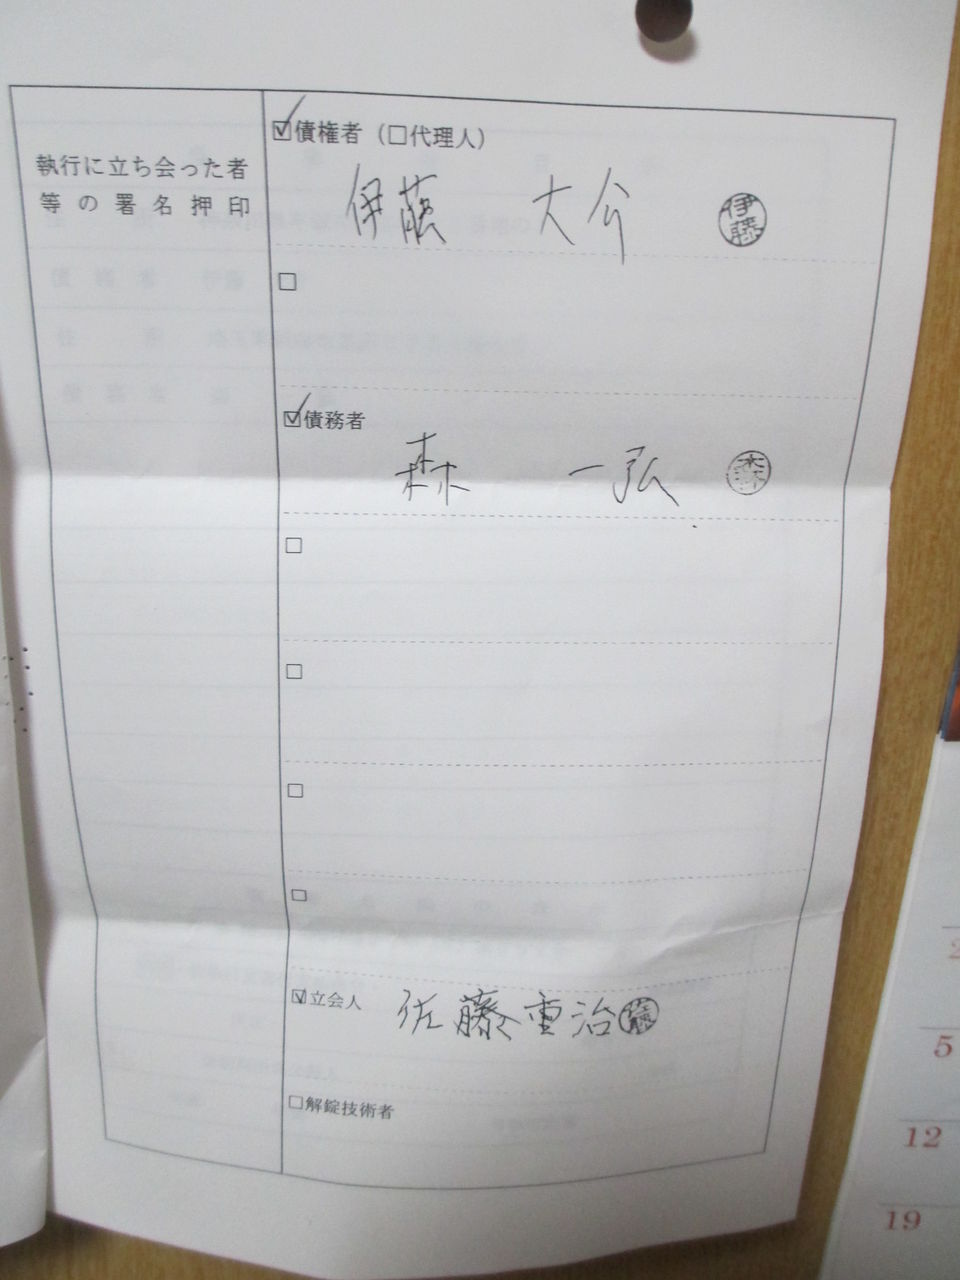 執行に立ち会った者
等の署名押印
☑債権者（□代理人）
伊藤 大介 伊藤
□
☑債務者
森 一弘 森
□
□
□
□
☑立会人 佐藤重治 佐藤
□解錠技術者
5
12
19